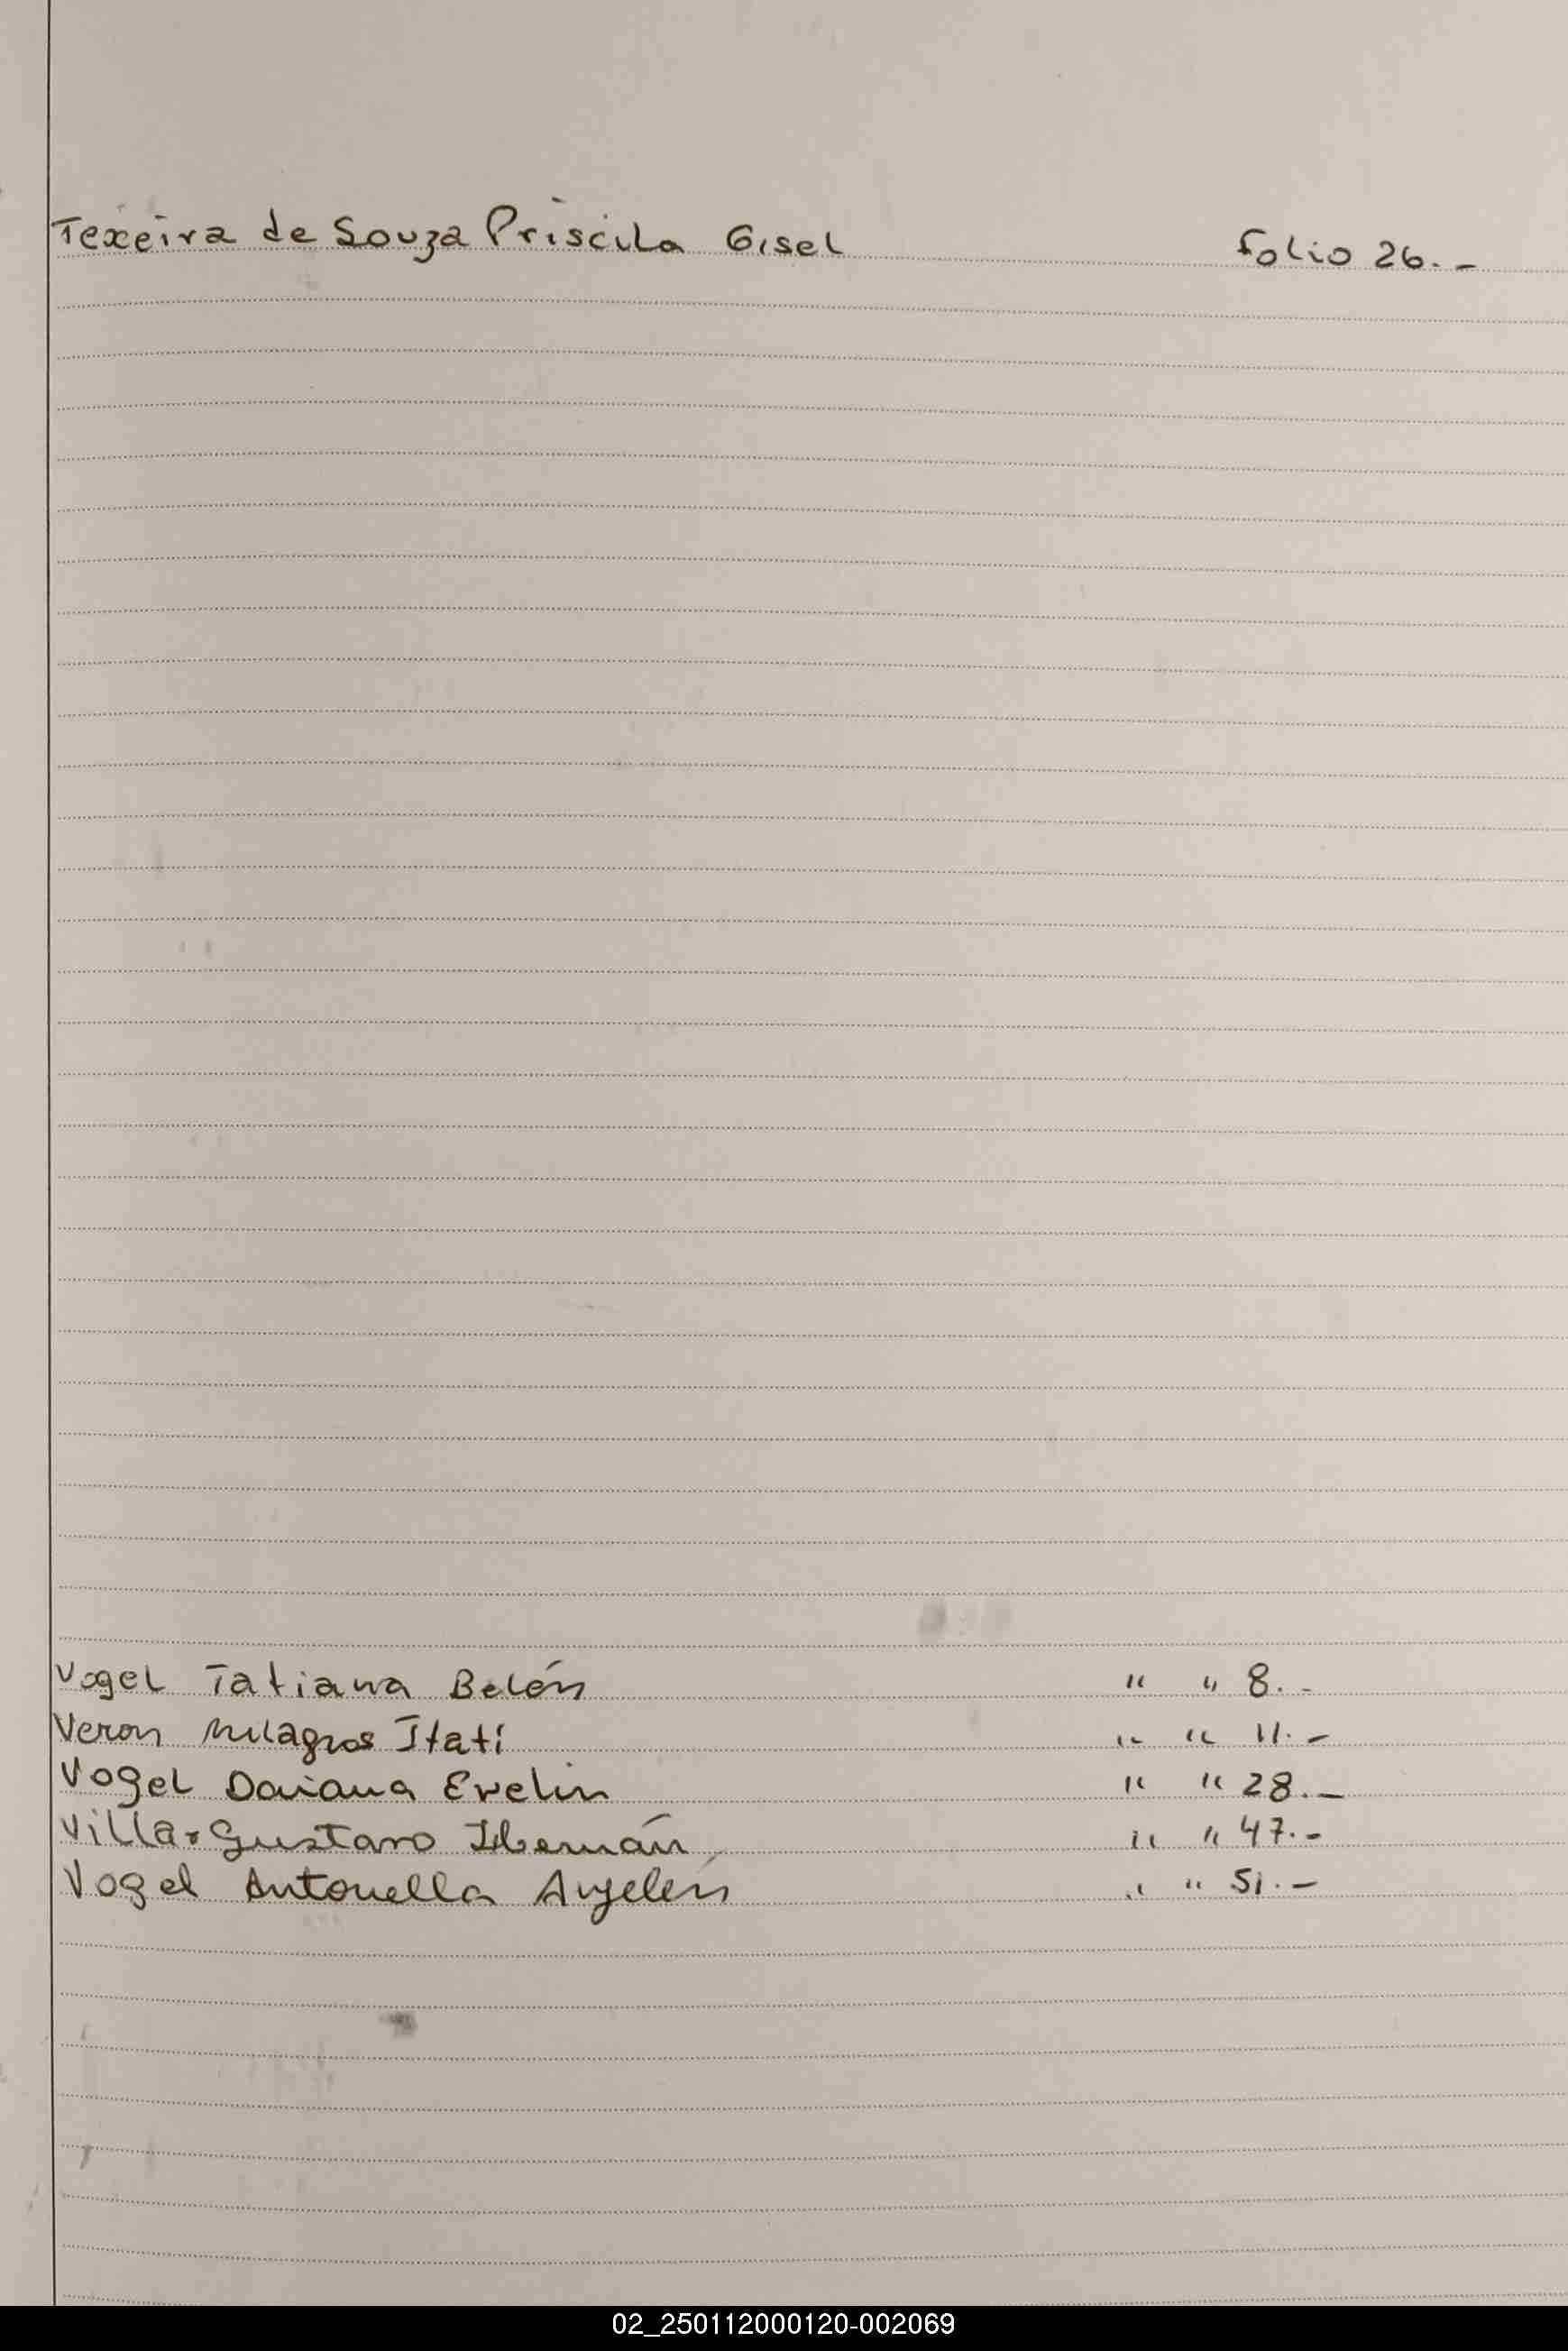 Texeira de Souza Priscila Gisel Folio 26.-
Vogel Tatiana Belén " " 8.-
Veron Milagros Itatí " " 11.-
Vogel Daiana Evelin " " 28.-
Villar Gustavo Hernán " " 47.-
Vogel Antonella Anyelén " " 51.-
02_250112000120-002069